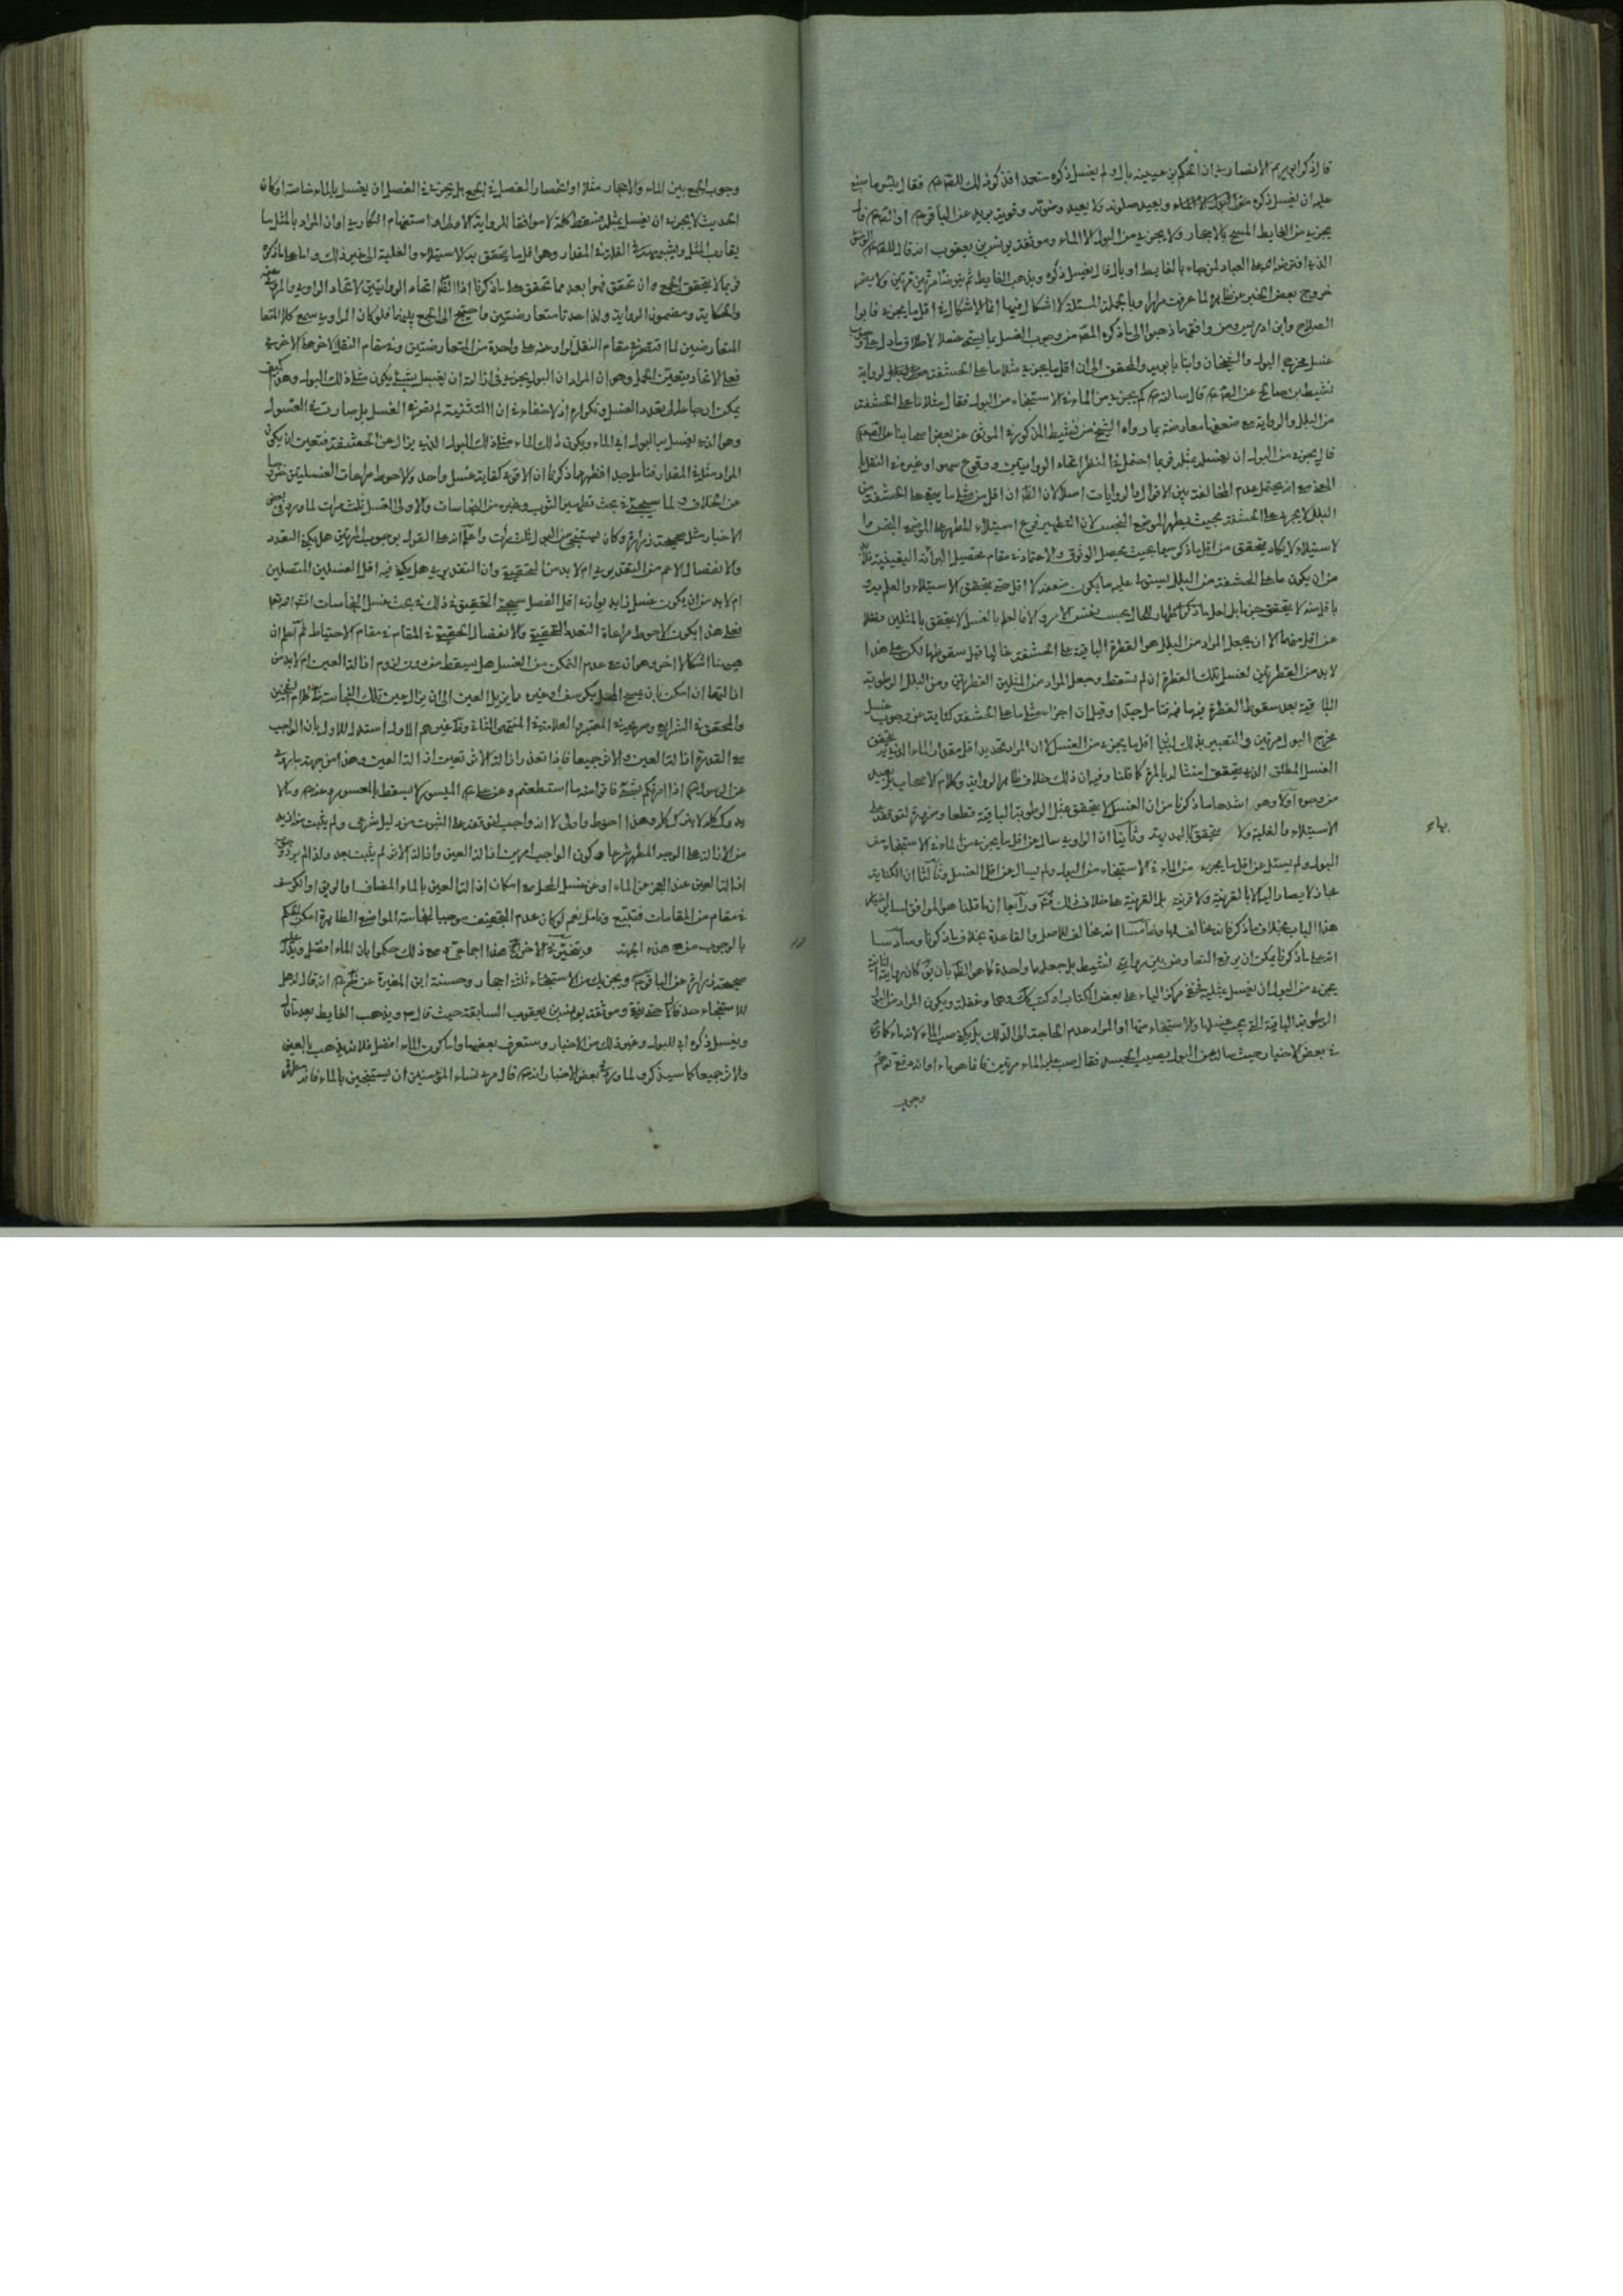 قال ذكر ابو مريم الانصاري ان الحكم بن عيينه بال ولم يغسل ذكره متعمدا فذكرت ذلك للصّ ع فقال بئس ما صنع
عليه ان يغسل ذكره ويعيد صلوته ولا يعيد وضوئه وقوية بريد عن الباقر ع او الصّ ع قال
يجزي من الغايط المسح بالاحجار ولا يجزي من البول الا الماء وموثقة يونس بن يعقوب انه قال للصّ ع الوضوء
الذي افترضه الله على العباد لمن جاء بالغايط او بال قال يغسل ذكره ويذهب الغايط ثم يتوضأ مرتين مرتين ولا يضر
خروج بعض الخبر عن ظاهره لما عرفت مرارا وبالجملة المسئلة لا اشكال فيها انما الاشكال في اقل ما يجزي فابو
الصلاح وابن ادريس ومن وافقهما ذهبوا الى ما ذكره المصّ من وجوب الغسل بما يسمى غسلا لاطلاق ما دل على وجوب
غسل مخرج البول والشيخان وابنا بابويه والمحقق الى ان اقل ما يجزي مثلا ما على الحشفة من البلل لرواية
نشيط بن صالح عن الصّ ع قال سالته كم يجزي من الماء في الاستنجاء من البول فقال مثلا ما على الحشفة
من البلل والرواية مع ضعفها معارضة بما رواه الشيخ عن نشيط المذكور في الموثق عن بعض اصحابنا عن الصّ ع
قال يجزي من البول ان يغسله بمثله فربما احتمل في النظر اتحاد الروايتين ووقوع سهو او غيره في النقل
البلل لا يجري على الحشفة بحيث يطهر الموضع النجس لان التطهير فرع استيلاء المطهر على الموضع النجس وا
لاستيلاء لا يكاد يتحقق من اقل ما ذكر سيما بحيث يحصل الوثوق والاعتماد في مقام تحصيل البرائة اليقينية فلا بد
من ان يكون ما على الحشفة من البلل يستولي عليه ما يكون ضعفه لا اقل حتى يتحقق الاستيلاء والعلم به و
عن اقل منهما الا ان يجعل المراد من البلل هو القطرة الباقية على الحشفة غالبا قبل سقوطها لكن على هذا
لا بد من القطرتين لغسل تلك القطرة ان لم تسقط وجعل المراد من المثلين القطرتين ومن البلل الرطوبة
الباقية بعد سقوط القطرة فيها فتامل جيدا وقيل ان اجزاء مثلي ما على الحشفة كناية عن وجوب غسل
مخرج البول مرتين والتعبير بذلك لبيان اقل ما يجزي من الغسل لان المراد تحديد اقل مقدار الماء الذي يتحقق
الغسل المطلق الذي يتحقق امتثاله بالمرة كما قلنا وفيه ان ذلك خلاف ظاهر الرواية وكلام الاصحاب بل بعيد
من وجوه اولا وهو اشدها ما ذكرنا من ان الغسل لا يتحقق بمثل الرطوبة الباقية قطعا ومزيد لتوقفه على
الاستيلاء والغلبة ولا يتحقق الا به وثانيا ان الراوي سال عن اقل ما يجزي من الماء في الاستنجاء من
البول ولم يسئل عن اقل ما يجزي من الماء في الاستنجاء من البول ولم يسال عن اقل الغسل وثالثا ان الكناية
مجاز لا يصار اليه الا بالقرينة ولا قرينة بل القرينة على خلاف ذلك ورابعا ان ما قلنا هو الموافق لسائر اخبار
هذا الباب بخلاف ما ذكر فانه مخالف لها وخامسا انه مخالف للاصل والقاعدة بخلاف ما ذكرنا وسادسا
انه على ما ذكرنا يمكن ان يرفع التعارض بين روايتي نشيط بل جعلهما واحدة كما هو الظ بان يق كان رواية الثانية
يجزي من البول ان يغسل بمثليه فتحقق مركز الياء على بعض الكتاب او كتب كك وهما وغفلة ويكون المراد من البول
الرطوبة الباقية التي يجب غسلها والاستنجاء منها او المراد عدم الحاجة الى الدلك بل يكفي صب الماء لانه ماء كما في
بعض الاخبار حيث سال عن البول يصيب الجسد فقال صب عليه الماء مرتين فانما هو ماء او انه دفع توهم
وجوب
بهاء
وجوب الجمع بين الماء والاحجار مثلا او انحصار الفصل في الجمع بل يجزي في الفضل ان يغسل بالماء خاصة او كان
الحديث لا يجزي ان يغسل بمثله فسقط كلمة لا موافقا للرواية الاولى او استفهام انكاري او ان المراد بالمثل ما
يقارب المثل ويشبهه في القلة في المقدار وهو اقل ما يتحقق به الاستيلاء والغلبة الى غير ذلك واما على ما ذكره
فربما لا يتحقق الجمع وان تحقق فهو ابعد مما تحقق على ما ذكرنا اذ الظ اتحاد الروايتين لاتحاد الراوي والمروي عنه
والحكاية ومضمون الرواية ولذا عدتا متعارضتين واحتيج الى الجمع بينهما فلو كان الراوي سمع كلا المتعا
رضين لما اقتصر في مقام النقل اولا على واحدة من المتعارضتين وفي مقام النقل الاخر على الاخرى
فعلى الاتحاد يتعين الحمل وهو ان المراد ان البول يجزي في ازالته ان يغسل بشيء يكون مثل ذلك البول وهو كيف
يمكن ارجاعه الى تعدد الغسل وتكراره اذ لا خفاء في ان التثنية لم تقرن في الغسل بل صارت في المغسول
وهو الذي يغسل به البول اي الماء ويكون ذلك الماء مثلي ذلك البول الذي يزال عن الحشفة فتعين ان يكون
المراد مثليه في المقدار فتامل جيدا فظهر مما ذكرنا ان الاقوى كفاية غسل واحد والاحوط مراعات الغسلتين خروجا
عن الخلاف ولما سيجئ في بحث تطهير الثوب وغيره من النجاسات والاولى الغسل ثلث مرات لما ورد في بعض
الاخبار مثل صحيحة زرارة وكان يستنجي من البول ثلث مرات واعلم انه على القول بوجوب المرتين هل يكفي التعدد
والانفصال الاعم من التقديري ام لا بد من الحقيقية وان التقديري هل يكفي فيه اقل الغسلين المتصلين
ام لا بد من ان يكون غسل زايد يوازي اقل الفصل سيجئ التحقيق في ذلك في بحث غسل النجاسات انشاء الله تعالى
فعلى هذا يكون الاحوط مراعاة التعدد الحقيقية والانفصال الحقيقية في المقام في مقام الاحتياط ثم اعلم ان
هيهنا اشكالا اخر وهو ان مع عدم التمكن من الغسل هل يسقط لزوم ازالة العين ام لا بد من
ازالتها ان امكن بان يمسح المحل بكرسف او غيره مما يزيل العين الى ان يزال عين تلك النجاسة ظاهر الشيخين
والمحقق في الشرايع وصريحه في المعتبر والعلامة في المنتهى الثاني وظ غيرهم الاول استدل للاول بان الواجب
مع القدرة ازالة العين والاثر جميعا فاذا تعذر ازالة الاثر تعينت ازالة العين وهذا من جهة ما روي
عن الرسول ص اذا امرتكم بشيء فاتوا منه ما استطعتم وعن علي ع الميسور لا يسقط بالمعسور وعنه ع ما لا
يدرك كله لا يترك كله وهذا احوط واولى لا انه واجب لتوقفه على الثبوت من دليل شرعي ولم يثبت ازيد
من الازالة على الوجه المطهر شرعا وكون الواجب امرين ازالة العين وازالة الاثر لم يثبت بعد ولذا لم يرد وجوب
ازالة العين عند العجز عن الماء او عن غسل المحل مع امكان ازالة العين بالماء المضاف او الريق او الكرسف
في مقام من المقامات فتتبع وتامل نعم لو كان عدم التجفيف موجبا لنجاسة المواضع الطاهرة امكن الحكم
بالوجوب من هذه الجهة ويتخير في الاخراج هذا اجماعي ومع ذلك حكموا بان الماء افضل ويدل عليه
صحيحة زرارة عن الباقر ع ويجزيك من الاستنجاء ثلثة احجار وحسنة ابن المغيرة عن ظم ع انه قال له هل
للاستنجاء حد قال لا حتى ينقي وموثقة يونس بن يعقوب السابقة حيث قال ع ويذهب الغايط بعد ما قال
ويغسل ذكره اي للبول وغير ذلك من الاخبار وستعرف بعضها واما كون الماء افضل فلانه يذهب بالعين
والاثر جميعا كما سيذكر ولما ورد في بعض الاخبار انه ع قال مري نساء المؤمنين ان يستنجين بالماء فانه مطهرة